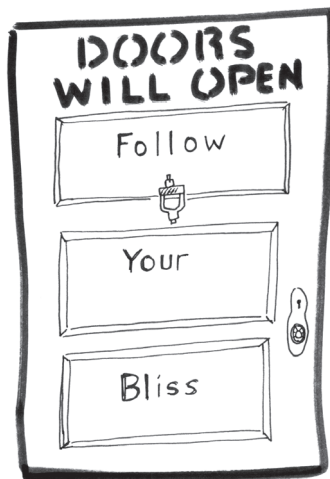 DOORS
WILL OPEN
Follow
Your
Bliss